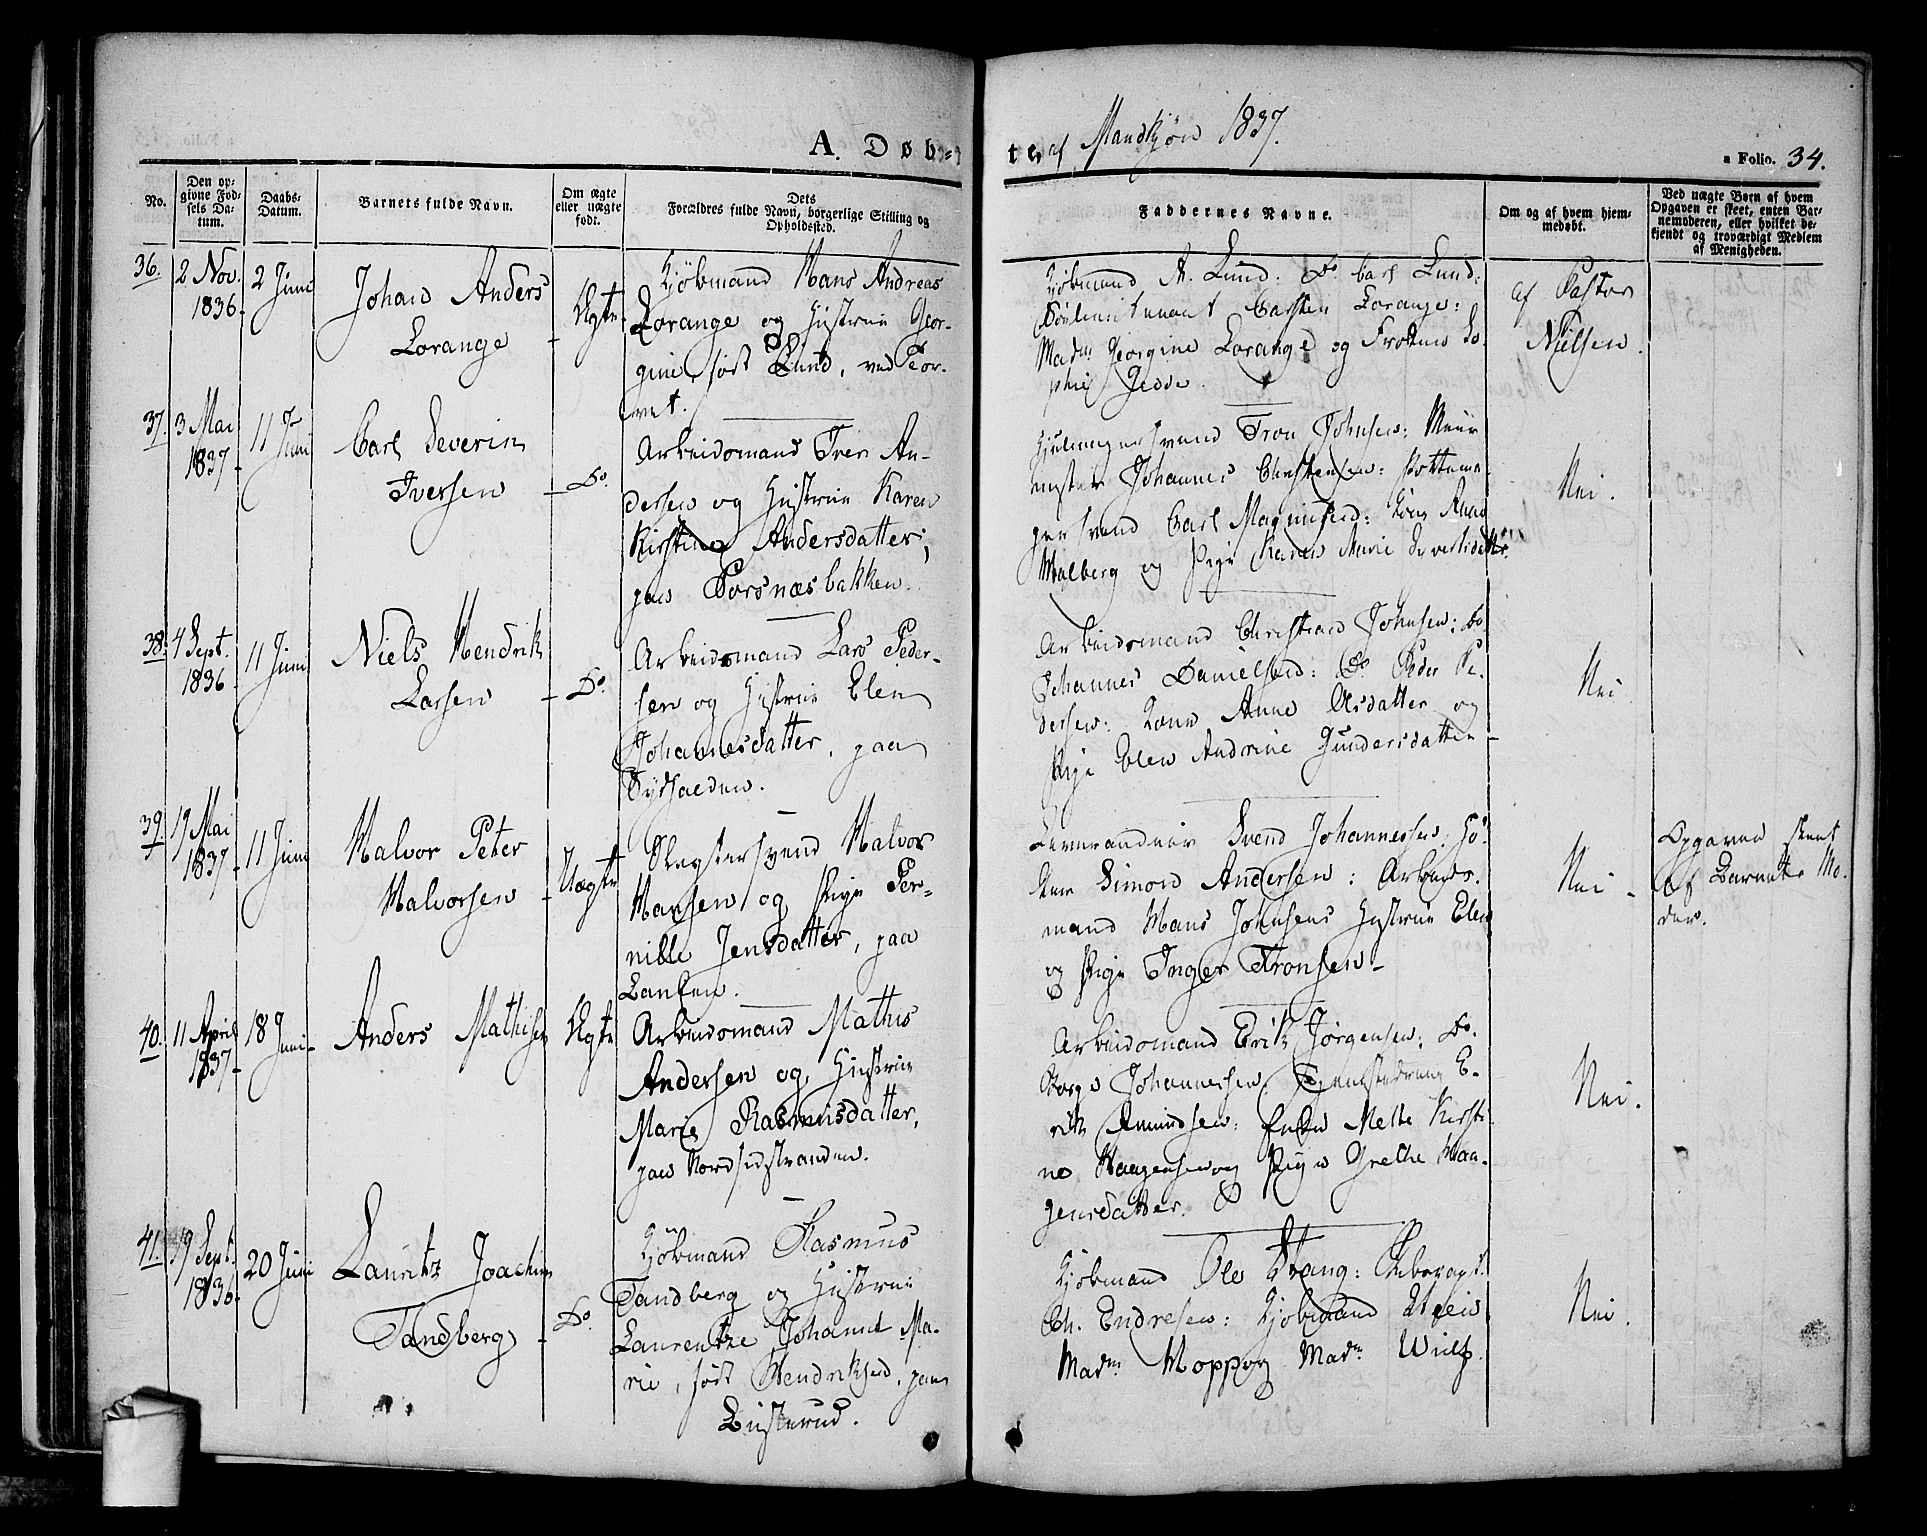 A. Døb-
te af Mandkjøn 1837.
a Folio. 34.
No.
Den op-
givne Fød-
sels Da-
tum.
Daabs-
Datum.
Barnets fulde Navn.
Om ægte
eller uægte
født.
Dets
Forældres fulde Navn, borgerlige Stilling og
Opholdssted.
Faddernes Navne.
Om og af hvem hjem-
medøbt.
Ved uægte Børn af hvem
Opgaven er skeet, enten Bar-
nemoderen, eller hvilket be-
kjendt og troværdigt Medlem
af Menigheden.
36.
2 Nov.
1836.
2 Juni
Johan Anders
Lorange
Ægte
Kjøbmand Hans Andreas
Lorange og Hustrue Geor-
gine, født Lund, ved Tor-
vet.
Kjøbmand A. Lund: Do Carl Lund:
Carsten Lorange:
Madm Georgine Lorange og Frøken So-
phie Jesse.
af Pastor
Nielsen.
37.
3 Mai
1837
11 Juni
Carl Severin
Iversen
Do.
Arbeidsmand Iver An-
dersen og Hustrue Karen
Kirstine Andersdatter,
paa Torsnæsbakken.
svend Tron Johnsen: Muur
mester Johannes Christensen: Pottema-
gersvend Carl Magnussen: Kone Anne
Malberg og Pige Karen Marie Syvertsdatter.
Nei.
38.
4 Sept.
1836
11 Juni
Niels Hendrik
Larsen
Do.
Arbeidsmand Lars Peder-
sen og Hustrue Elen
Johannesdatter, paa
Sydsaeden.
Arbeidsmand Christian Johnsen: Do
Johannes Danielsen: Do Peder Pe-
dersen: Kone Anne Olsdatter og
Pige Elen Andrine Gundersdatter
Nei
39.
19 Mai
1837
11 Juni
Halvor Peter
Halvorsen
Uægte
Slagtersvend Halvor
Hansen og Pige Per-
nille Jensdatter, paa
Lanken.
Svend Johannessen:
Simon Andersen: Arbeids-
mand Hans Johnsens Hustrue Elen
og Pige Inger Tronsen
Nei
Opgaven skeet
af Barnets Mo-
der.
40.
11 April
1837
18 Juni
Anders Mathisen
Ægte
Arbeidsmand Mathis
Andersen og Hustrue
Marie Rasmusdatter,
paa Nordsidstranden.
Arbeidsmand Erik Jørgensen: Do.
Børge Johannessen: E-
rik Amundsen: Enke Mette Kirsti-
ne Haagensen og Pige Grethe Haa-
gensdatter.
Nei.
41.
19 Sept.
1836.
20 Juni
Lauritz Joachim
Tandberg
Do.
Kjøbmand Rasmus
Tandberg og Hustrue
Laurentze Johanne Ma-
rie, født Hendriksen, paa
Lusterud.
Kjøbmand Ole Stang:
Ch. Endresen: Kjøbmand
Madm Hopp og Madm Wulf.
Nei.